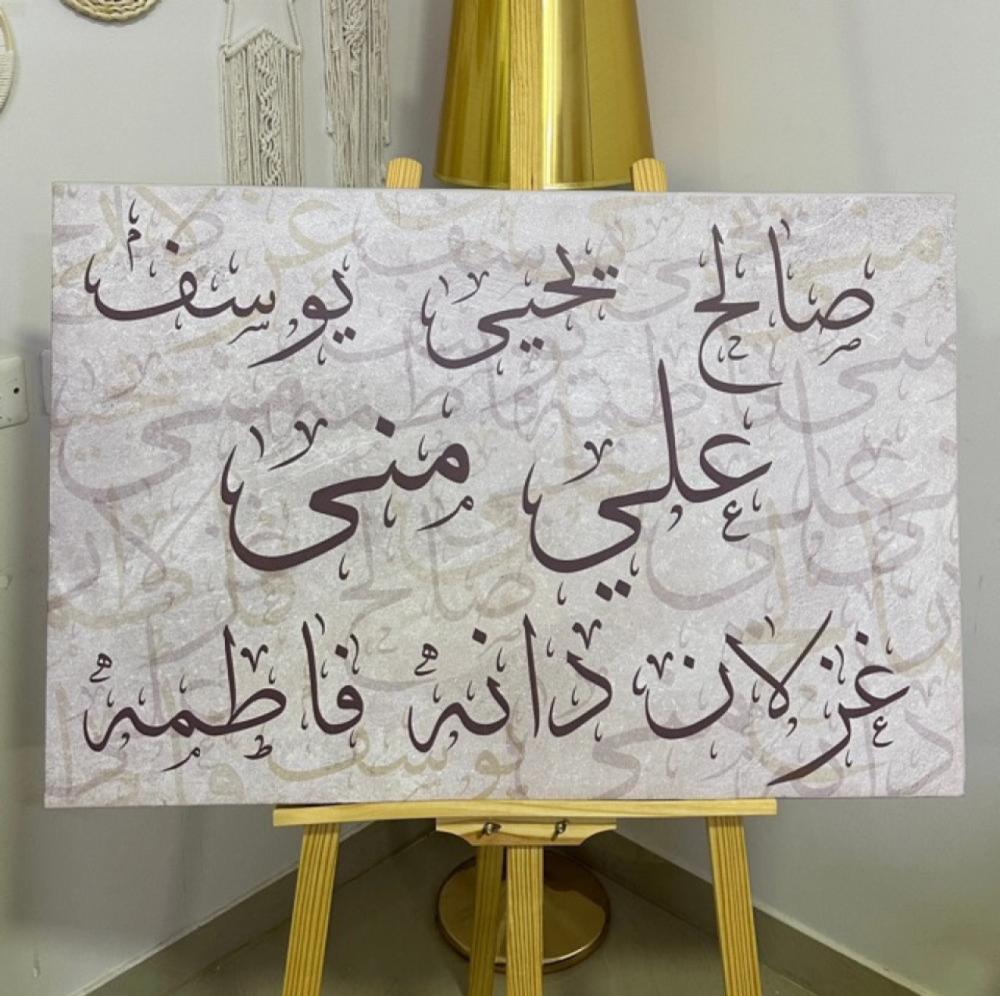 صالح يحيى يوسف
علي منى
غزلان دانه فاطمه